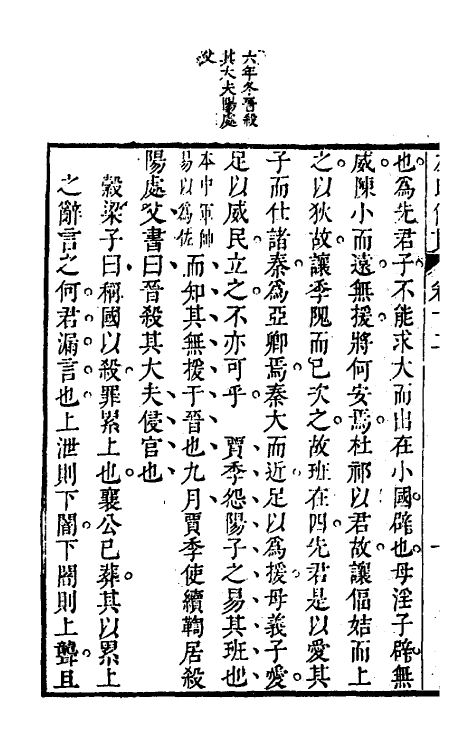 六年冬晉殺
其大夫陽處
父
也為先君子不能求大而出在小國辟也母淫子辟無
威陳小而遠無援將何安焉杜祁以君故讓偪姞而上
之以狄故讓季隗而己次之故班在四先君是以愛其
子而仕諸秦為亞卿焉秦大而近足以為援母義子愛
足以威民立之不亦可乎　賈季怨陽子之易其班也
本中軍帥
易以為佐
而知其無援于晉也九月賈季使續鞫居殺
陽處父書曰晉殺其大夫侵官也
穀梁子曰稱國以殺罪累上也襄公已葬其以累上
之辭言之何君漏言也上泄則下闇下闇則上聾且